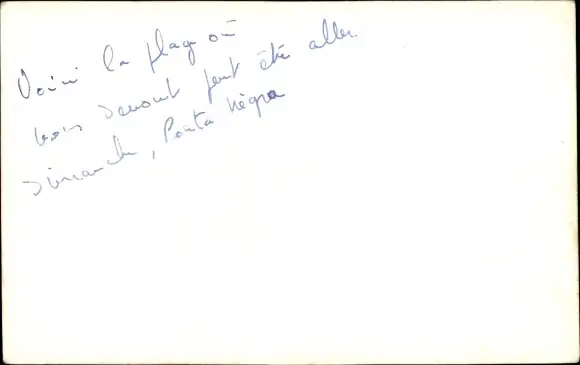 Voici la plage où
nous serons peut été aller
dimanche, Ponta Négra